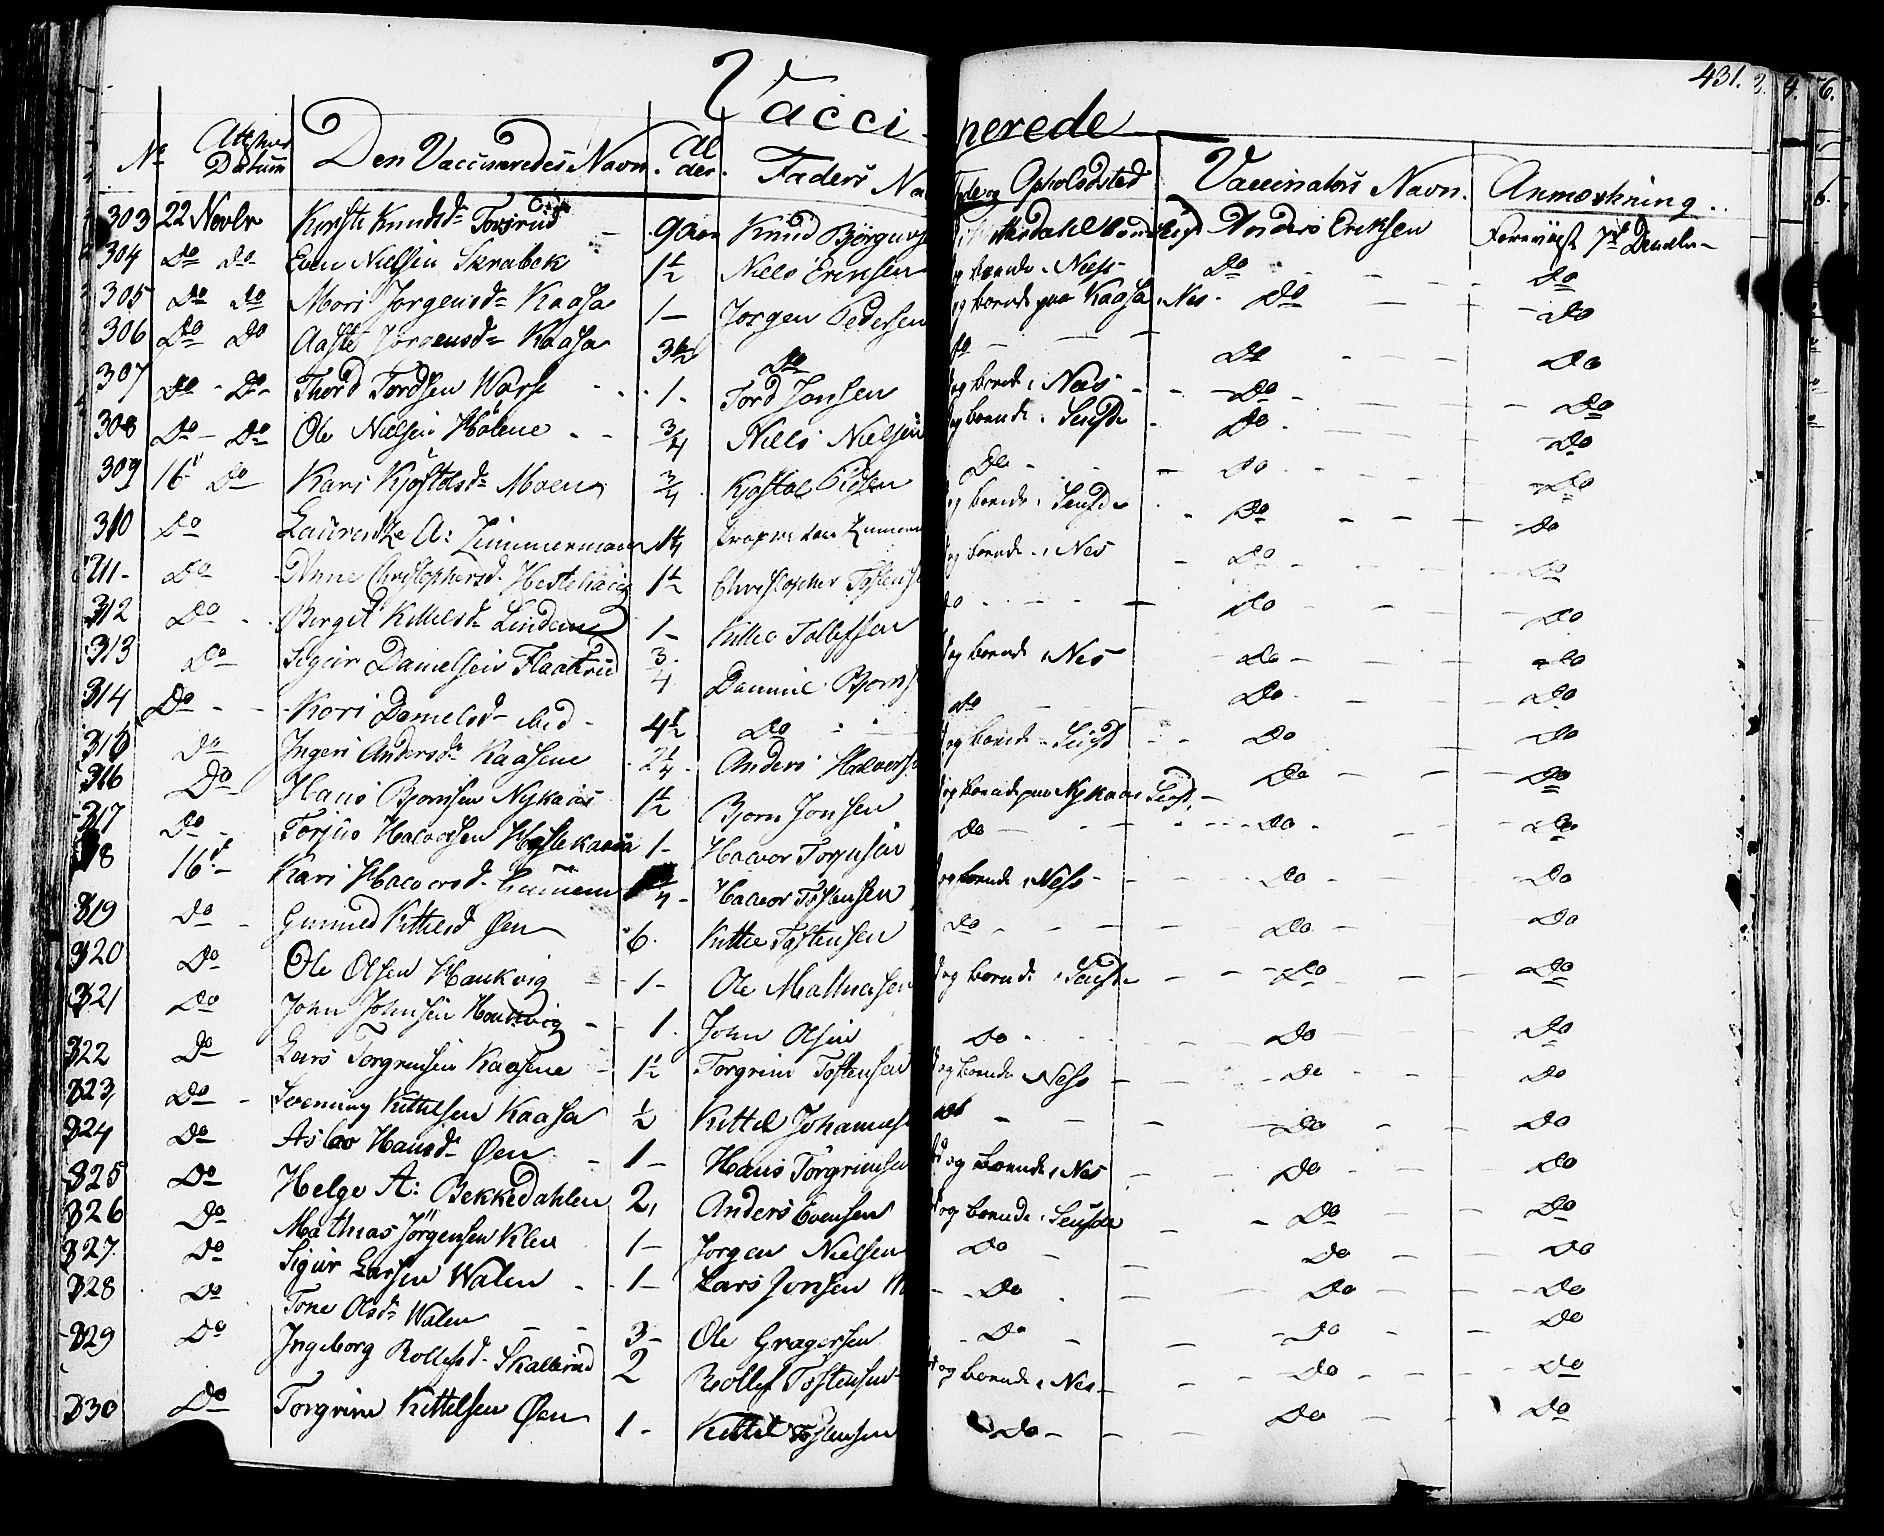 431.
Vaccinerede
No Attestens Datum Den Vaccineredes Navn. Alder. Faders Na og Opholdsted Vaccinateurs Navn. Anmærkning.
303 22 Novbr Kirsti Knudsd. 9 Aar Knud Anders Eriksen 7de Decebr
304 Do Do Even Nielsen Skrabek 1½ Niels Eriksen og boende i Ness Do Do
305 Do Do Mari Jørgensd. Kaasa 1 Jørgen Pedersen og boende paa Kaasa i Nes Do Do
306 Do Do Aaste Jørgensd. Kaasa 3½ Do do Do Do
307 Do Do Thord Tordsen 1 Tord Jonsen og boende i Nes Do Do
308 Do Do Ole Nielsen 3/4 Niels Nielsen og boende i Do Do
309 16 Do Kari Kjøstelsd. Moen 3/4 Kjøstol Do Do Do
310 Do A: Zimmermann 1¼ og boende i Do Do
311 Do Anne Christophersd. 1½ Christopher Tostens og boende i Nes Do Do
312 Do Birgit Kittelsd. Linden 1 Kittel Tollefsen do Do Do
313 Do Sigur Danielsen 3/4 Daniel Bjørns og boende i Nes Do Do
314 Do Kari Danielsd. ibid 4½ Do do Do Do
315 Do Ingeri Andersd. Kaasene 2¼ Anders Halvors og boende Do Do
316 Do Hans Bjørnsen Nykaas 1½ Bjørn Jonsen og boende paa Nykaas Do Do
317 Do Torjus Halvorsen 1 Halvor Do Do Do
318 16 Kari Halvorsd. Halvor Tostensen og boende i Ness Do Do
319 Do Gunild Kittelsd. Øen 6 Kittel Tostensen Do Do Do
320 Do Ole Olsen Haukvig 1 Ole Mathiasen og boende i Do Do
321 Do John Johnsen Haukvig 1 John Olsen Do Do Do
322 Do Lars Torgrimsen Kaasene 1½ Torgrim Tostensen og boende i Ness Do Do
323 Do Kittelsen Kaasa ½ Kittel Johannes do Do Do
324 Do Aslov Hansd. Øen 1 Hans Torgrimsen og boende i Nes Do Do
325 Do Helge A: Bekkedahlen 2 Anders Evensen og boende i Do Do
326 Do Mathias Jørgensen 1 Jørgen Nielsen Do Do Do
327 Do Sigur Larsen Walen 1 Lars Jonsen Do Do Do
328 Do Tone Olsd. Walen 3 Ole Gragersen Do Do Do
329 Do Ingeborg Rollefsd. Skallerud 2 Rollef Tostensen og boende i Nes Do Do
330 Do Torgrim Kittelsen Øen 1 Kittel Tostensen Do Do Do